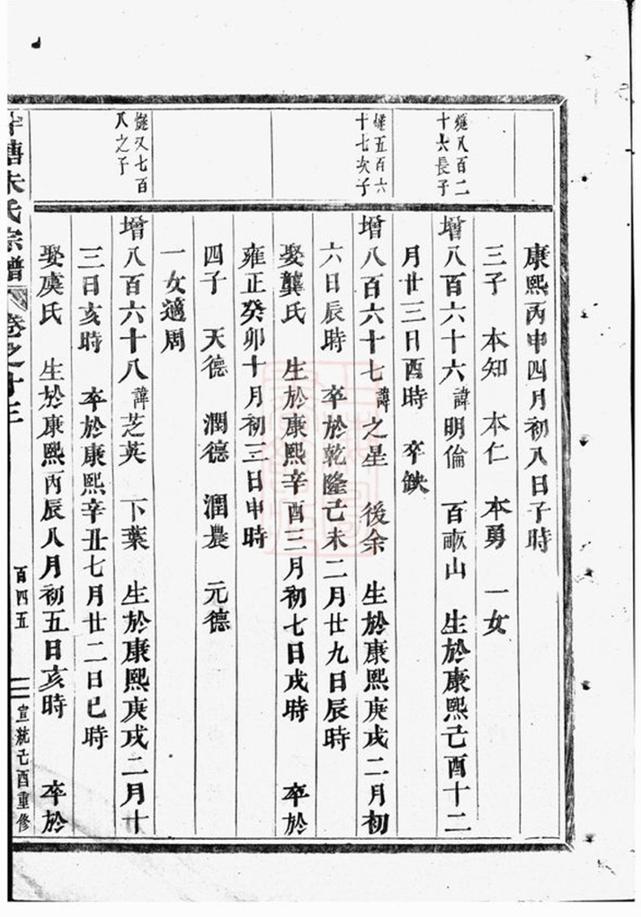 康熙丙申四月初八日子時
三子 本知 本仁 本勇 一女
慥八百二十六長子
增八百六十六諱明倫 百畝山 生於康熙己酉十二
月廿三日酉時 卒缺
慥五百六十七次子
增八百六十七諱之星 後余 生於康熙庚戌二月初
六日辰時 卒於乾隆己未二月廿九日辰時
娶龔氏 生於康熙辛酉三月初七日戌時 卒於
雍正癸卯十月初三日申時
四子 天德 潤德 潤農 元德
一女適周
慥又七百八之子
增八百六十八諱芝英 下葉 生於康熙庚戌二月十
三日亥時 卒於康熙辛丑七月廿二日巳時
娶虞氏 生於康熙丙辰八月初五日亥時 卒於
塘朱氏宗譜 卷之十三 百四五 宣統己酉重修